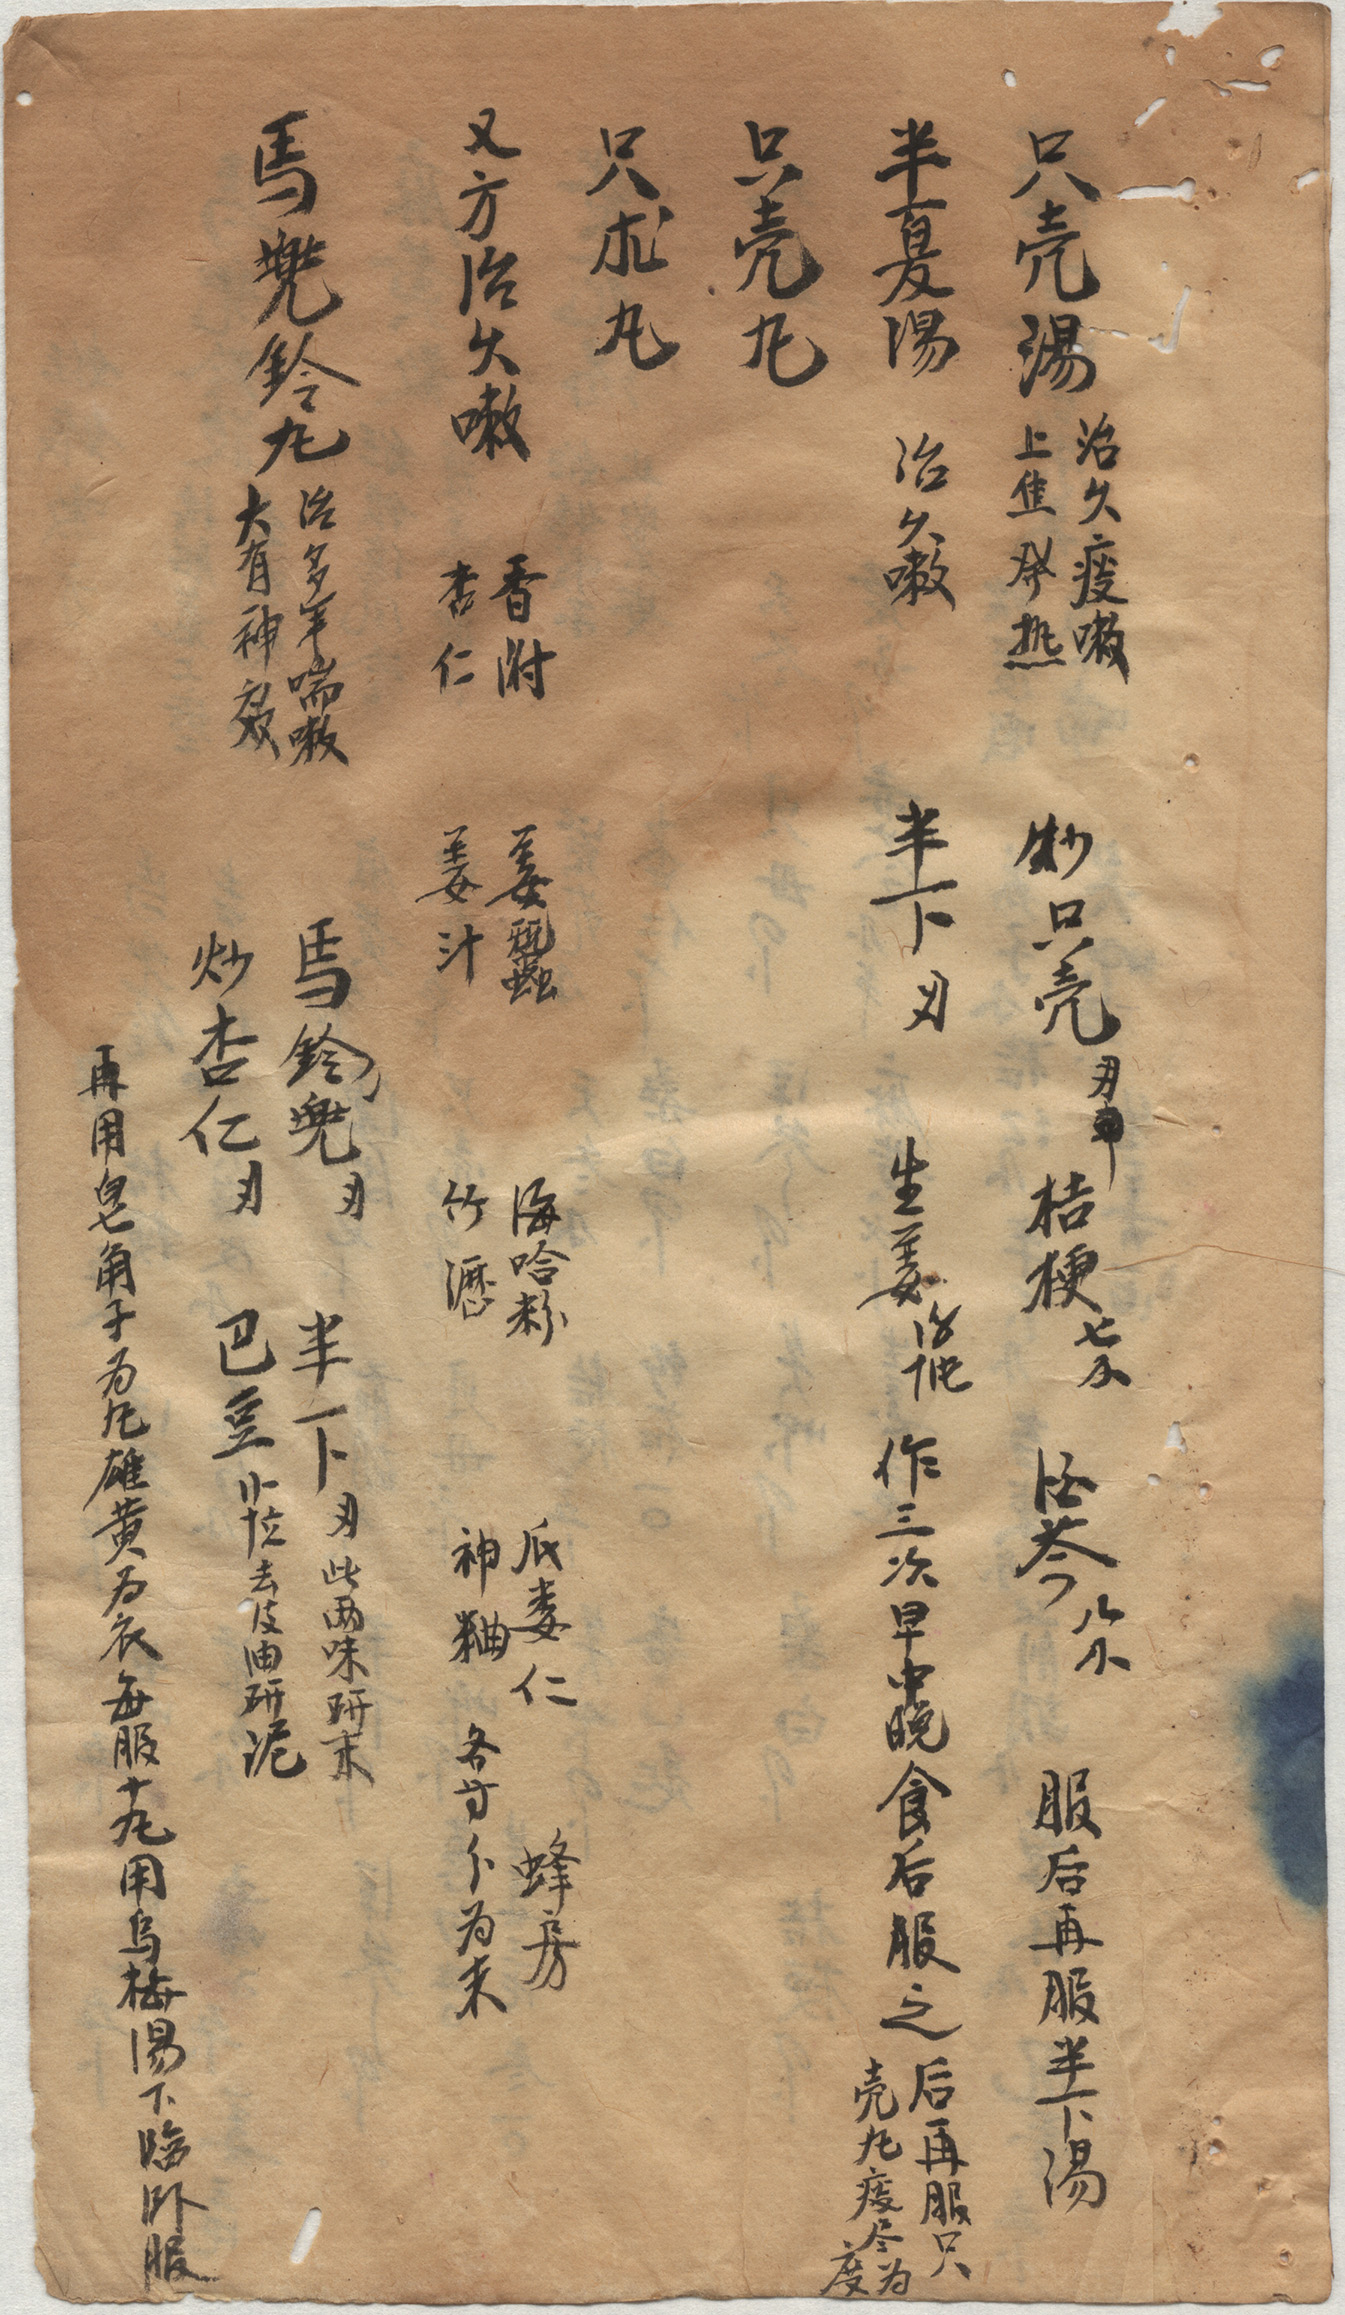 只壳湯
治久痰嗽
上焦發热
炒只壳
桔梗
服后再服半下湯
半夏湯
治久嗽
半下刄
生姜
作三次早中晚食后服之
后再服只
壳丸痰尽为
度
只壳丸
只朮丸
又方治久嗽
香附
杏仁
姜蠶
姜汁
海哈粉
竹瀝
瓜蒌仁
神粬
蜂房
各等分为末
馬兜鈴丸
治多年喘嗽
大有神效
馬鈴兜刄
炒杏仁刄
半下刄此两味研末
巴豆
去皮油研泥
再用皂角子为丸雄黄为衣每服十丸用烏梅湯下臨卧服